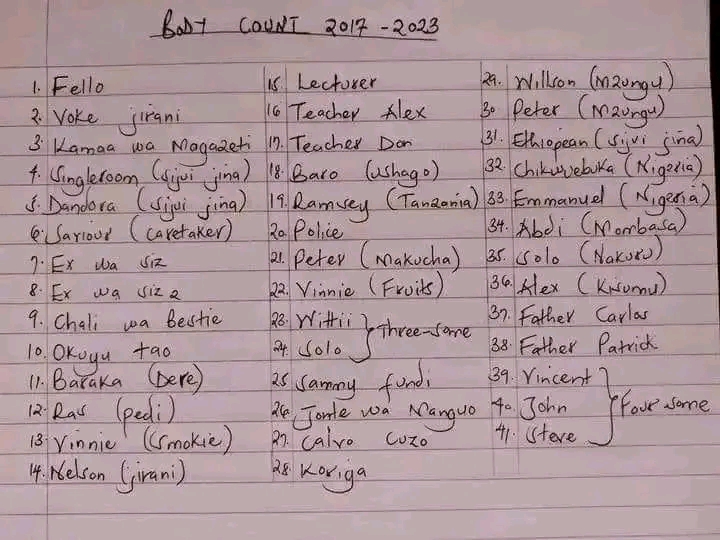 BODY COUNT 2017 - 2023
1. Fello
2. Voke jirani
3. Kamaa wa Magazeti
4. Singleroom (sijui jina)
5. Dandora (sijui jina)
6. Saviour (caretaker)
7. Ex wa siz
8. Ex wa siz 2
9. Chali wa bestie
10. Okuyu tao
11. Baraka (Dere)
12. Ras (pedi)
13. Vinnie (Smokie)
14. Nelson (jirani)
15. Lecturer
16 Teacher Alex
17. Teacher Dan
18. Baro (ushago)
19. Ramsey (Tanzania)
20. Police
21. Peter (Makucha)
22. Vinnie (Fruits)
23. Wittii
24. Solo } Three-some
25 Sammy fundi
26. Jomle wa Manguo
27. Calvo Cuzo
28. Koriga
29. Willson (Mzungu)
30 Peter (Mzungu)
31. Ethiopean (sijui jina)
32. Chikwuebuka (Nigeria)
33. Emmanuel (Nigeria)
34. Abdi (Mombasa)
35. Solo (Nakuru)
36. Alex (Kisumu)
37. Father Carlos
38. Father Patrick
39. Vincent
40. John } Four some
41. Steve